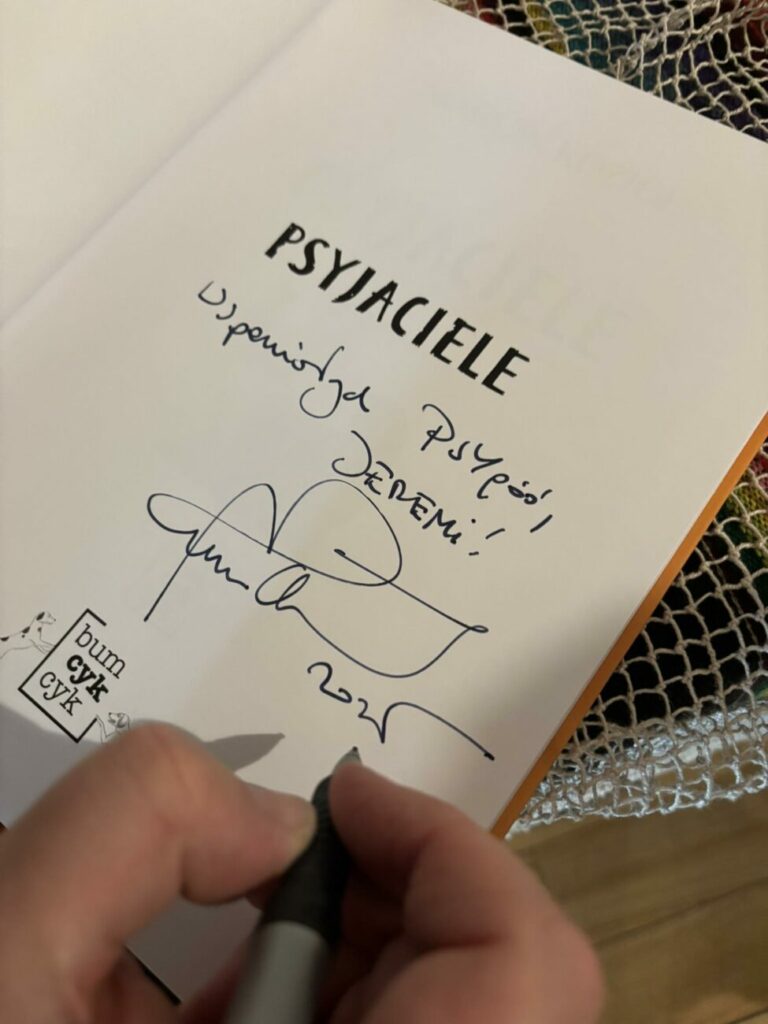 PSYJACIELE
Wspaniałych Psygód,
JEREMI!
2025
bum
cyk
cyk